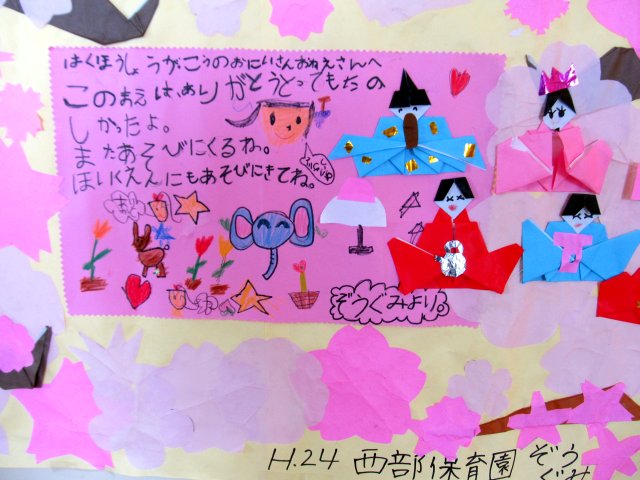 はくほうしょうがこうのおにいさんおねえさんへ
このまえは、ありがとうとってもたの
しかったよ。
またあそびにくるね。
ほいくえんにもあそびにきてね。
ぞうぐみより。
H.24 西部保育園 ぞう
ぐみ